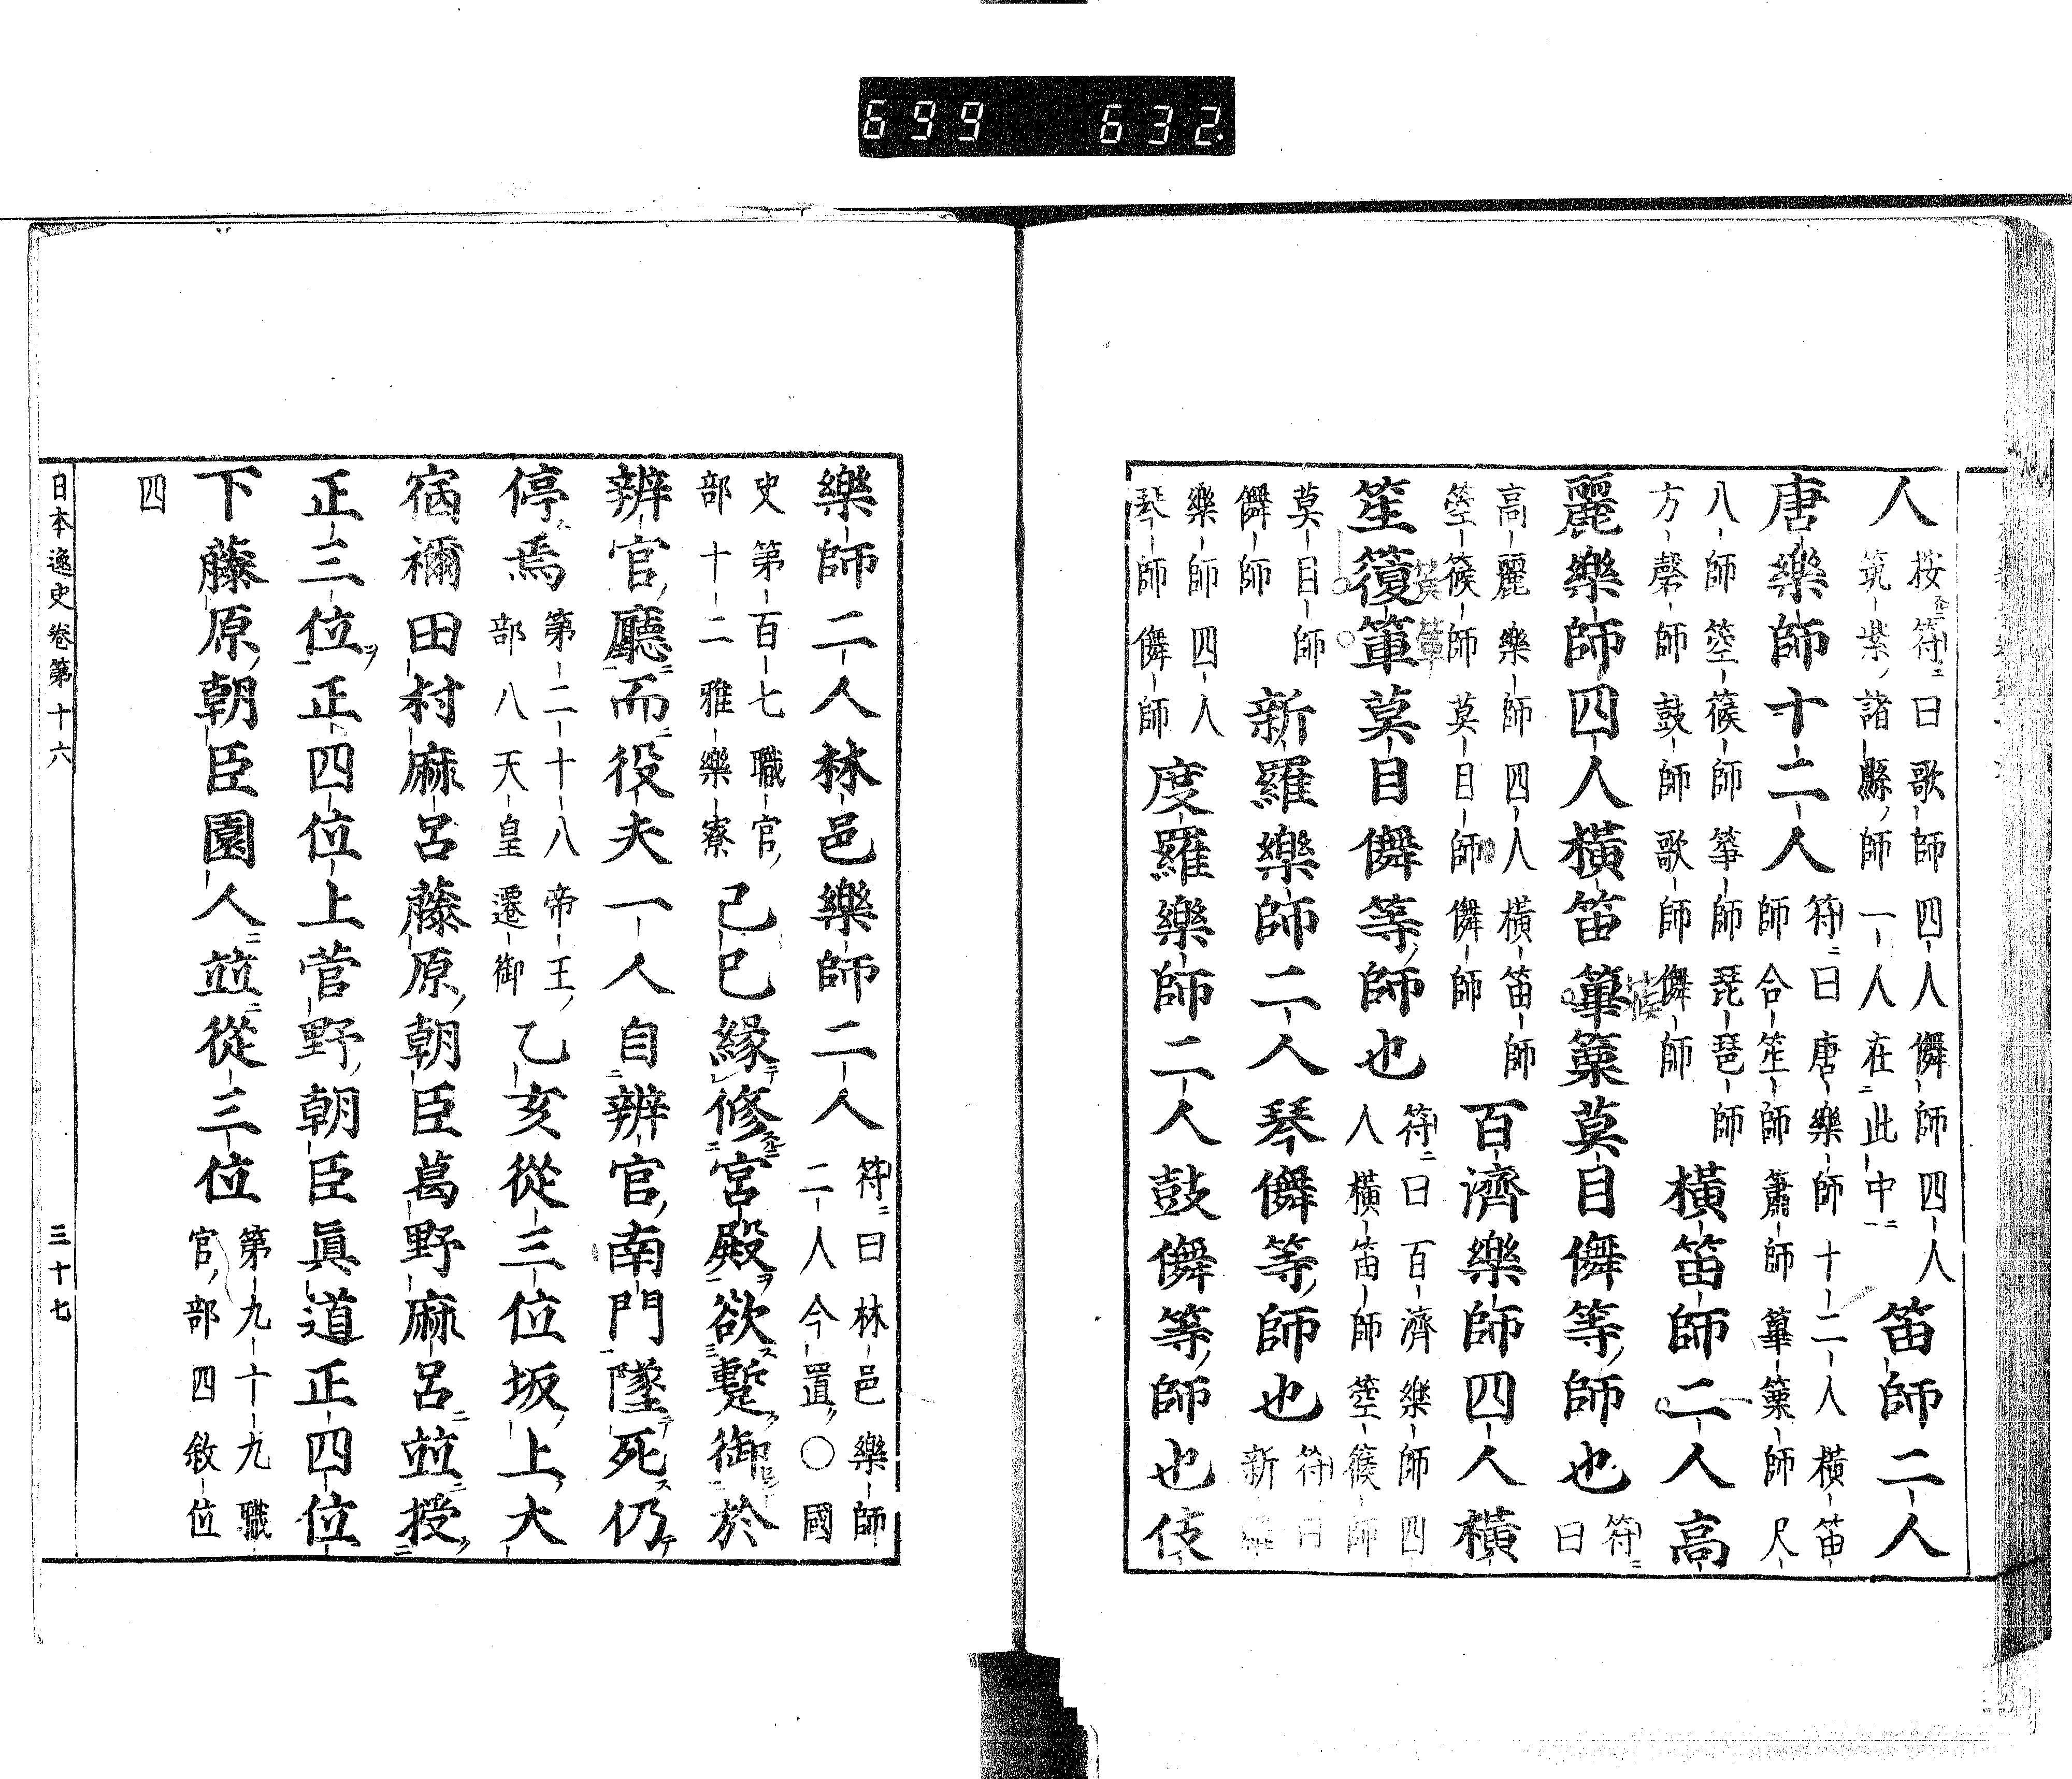 699 632.
人 按符曰歌師四人儛師四人
筑紫諸縣師一人在此中 笛師二人
唐樂師十二人 符曰唐樂師十二人橫笛
師合笙師簫師篳篥師尺
八師箜篌師箏師琵琶師
方磬師鼓師歌師儛師 橫笛師二人高
麗樂師四人橫笛篳篥莫目儛等師也 符
曰
高麗樂師四人橫笛師
箜篌師莫目師儛師 百濟樂師四人橫
笙篌篳莫目儛等師也 符曰百濟樂師四
人橫笛師箜篌師
莫目師
儛師 新羅樂師二人琴儛等師也 符曰
新羅
樂師四人
琴師儛師 度羅樂師二人鼓儛等師也伎
樂師二人林邑樂師二人 符曰林邑樂師
二人今置○國
史第百七職官
部十二雅樂寮 己巳緣修宮殿欲蹔御於
辨官廳而役夫一人自辨官南門墜死仍
停焉 第二十八帝王
部八天皇遷御 乙亥從三位坂上大
宿禰田村麻呂藤原朝臣葛野麻呂竝授
正三位正四位上菅野朝臣眞道正四位
下藤原朝臣園人竝從三位 第九十九職
官部四敘位
四
日本逸史卷第十六 三十七